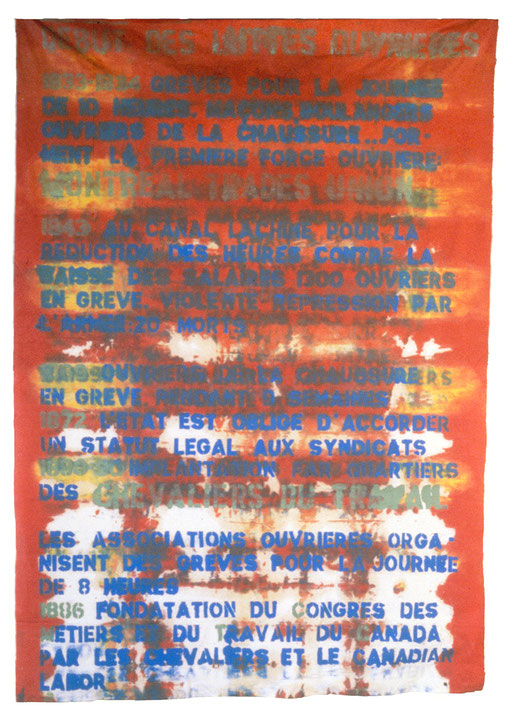 DEBUT DES LUTTES OUVRIERES
1833-1834 GREVES POUR LA JOURNEE
DE 10 HEURES, MAÇONS, BOULANGERS
OUVRIERS DE LA CHAUSSURE...FOR-
MENT LA PREMIERE FORCE OUVRIERE:
MONTREAL TRADES UNION
1843 AU CANAL LACHINE POUR LA
REDUCTION DES HEURES CONTRE LA
BAISSE DES SALAIRES 1300 OUVRIERS
EN GREVE, VIOLENTE REPRESSION PAR
L'ARMEE: 20 MORTS
OUVRIERS DE LA CHAUSSURE
EN GREVE PENDANT 3 SEMAINES
1872 L'ETAT EST OBLIGE D'ACCORDER
UN STATUT LEGAL AUX SYNDICATS
IMPLANTATION PAR QUARTIERS
DES CHEVALIERS DU TRAVAIL
LES ASSOCIATIONS OUVRIERES ORGA-
NISENT DES GREVES POUR LA JOURNEE
DE 8 HEURES
1886 FONDATATION DU CONGRES DES
METIERS ET DU TRAVAIL DU CANADA
PAR LES CHEVALIERS ET LE CANADIAN
LABOR